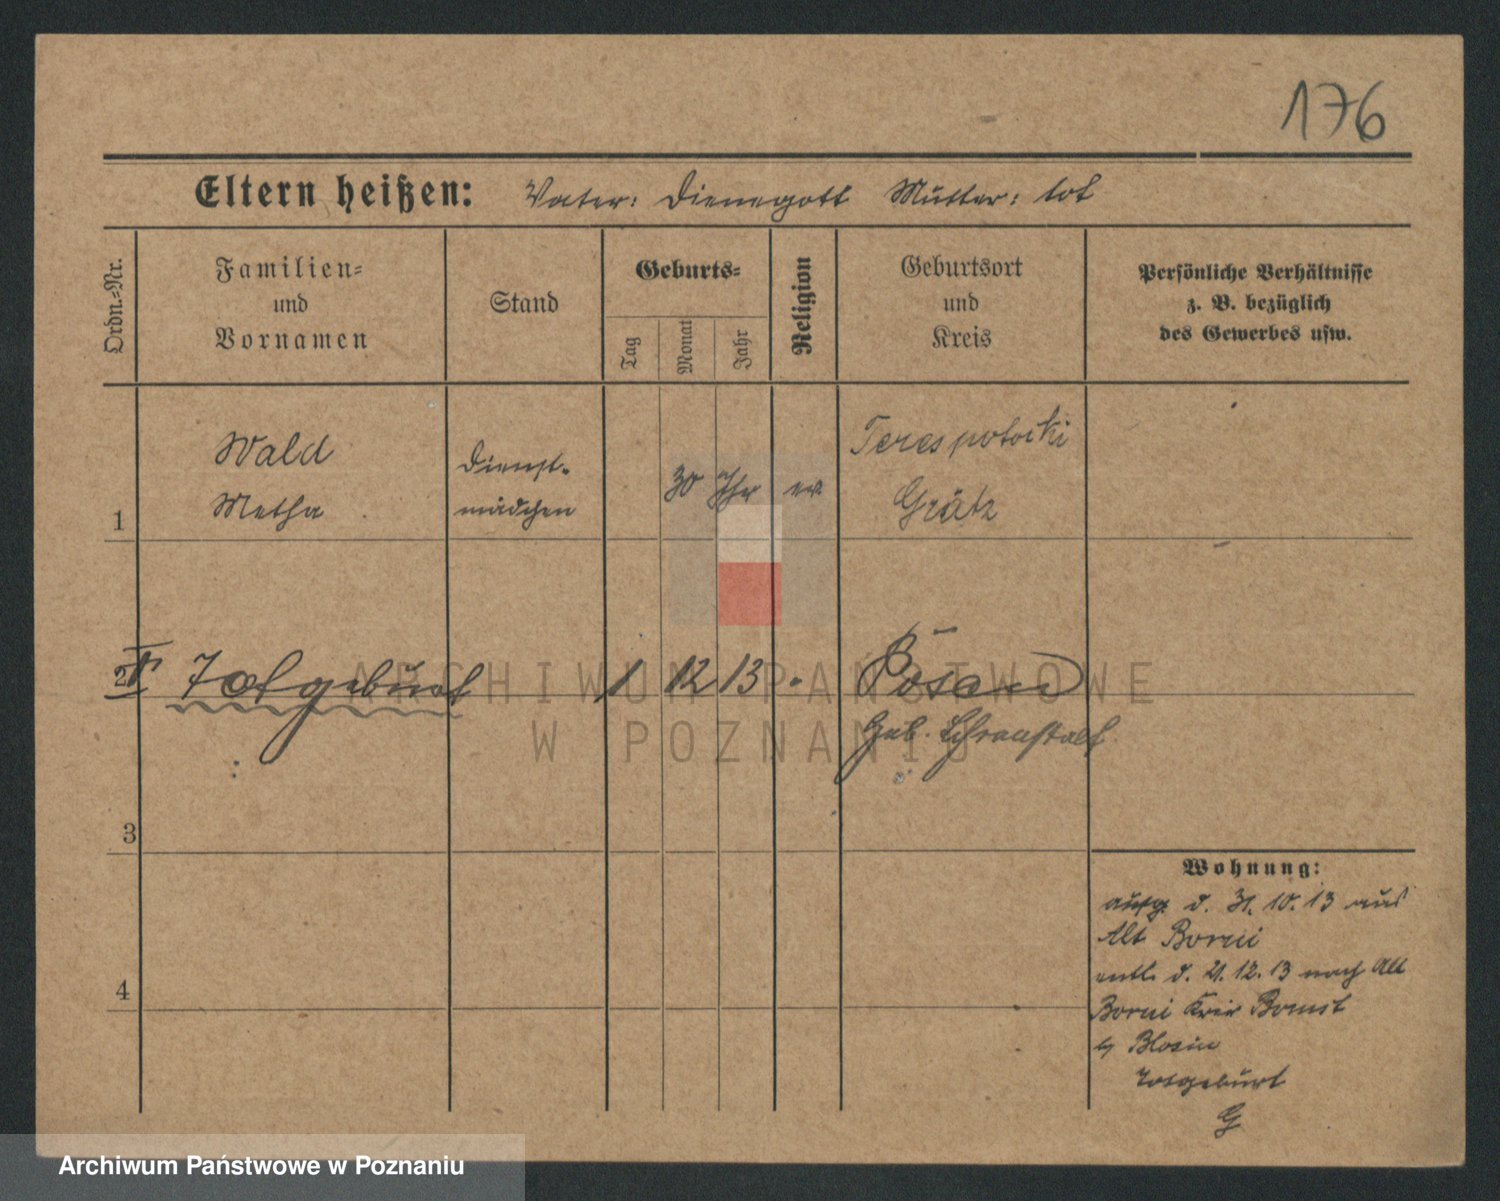 176
Eltern heißen: Vater: Dienegott Mutter: tot
Ordn.=Nr.
Familien=
und
Vornamen
Stand
Geburts=
Tag
Monat
Jahr
Religion
Geburtsort
und
Kreis
Persönliche Verhältnisse
z. B. bezüglich
des Gewerbes usw.
1
Wald
Metha
Dienst-
mädchen
30 Jhr
ev.
Terespotocki
Grätz
2
Totgeburt
1 12 13
Posen
Geb. Lehranstalt
3
4
Wohnung:
aufg. d. 31.10.13 aus
Alt Borui
entl. d. 21.12.13 nach Alt
Borui Kreis Bomst
Totgeburt
G
ARCHIWUM PAŃSTWOWE
W POZNANIU
Archiwum Państwowe w Poznaniu